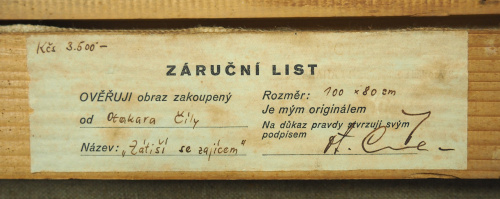 Kčs 3.500-
ZÁRUČNÍ LIST
OVĚŘUJI obraz zakoupený
od Otakara Číly
Název: „Zátiší se zajícem"
Rozměr: 100 × 80 cm
Je mým originálem
Na důkaz pravdy stvrzuji svým
podpisem